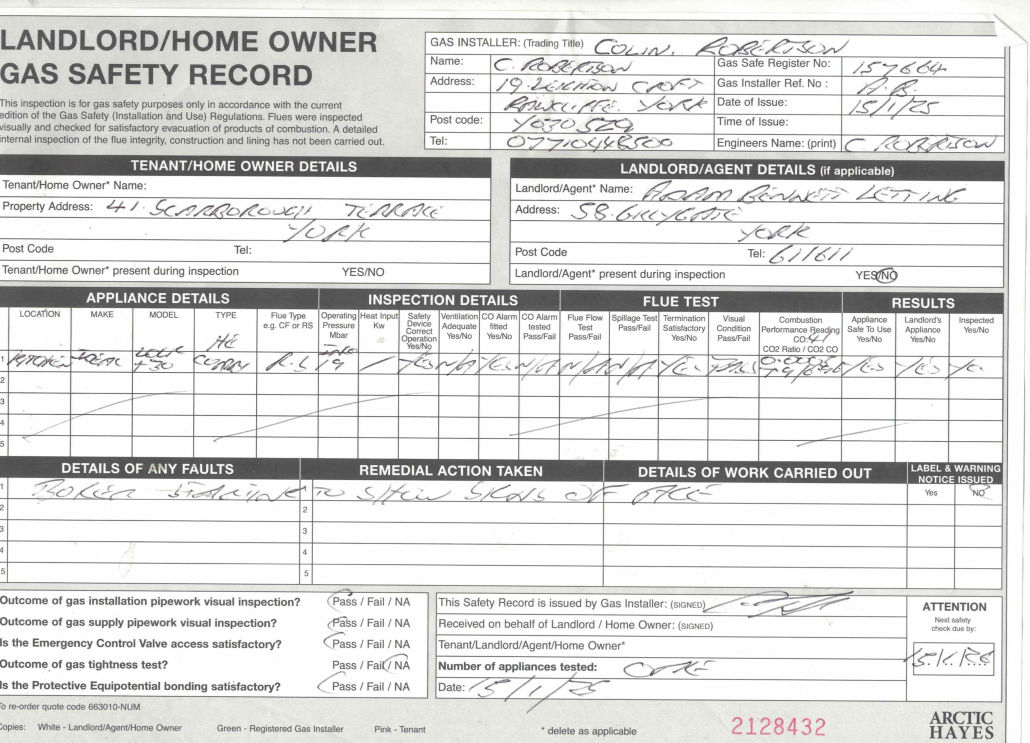 LANDLORD/HOME OWNER
GAS SAFETY RECORD
This inspection is for gas safety purposes only in accordance with the current
edition of the Gas Safety (Installation and Use) Regulations. Flues were inspected
visually and checked for satisfactory evacuation of products of combustion. A detailed
internal inspection of the flue integrity, construction and lining has not been carried out.
GAS INSTALLER: (Trading Title) COLIN. ROBERTSON
Name: C. ROBERTSON
Gas Safe Register No: 157664
Address: 19. CROFT
Gas Installer Ref. No :
RAWCLIFFE. YORK
Date of Issue: 15/1/25
Post code: YO30 5
Time of Issue:
Tel:
Engineers Name: (print) C ROBERTSON
TENANT/HOME OWNER DETAILS
Tenant/Home Owner* Name:
Property Address: 41. SCARBOROUGH TERRACE
YORK
Post Code Tel:
Tenant/Home Owner* present during inspection YES/NO
LANDLORD/AGENT DETAILS (if applicable)
Landlord/Agent* Name: ADAM BENNETT LETTING
Address: 58.
YORK
Post Code Tel: 611611
Landlord/Agent* present during inspection YES/NO
APPLIANCE DETAILS INSPECTION DETAILS FLUE TEST RESULTS
LOCATION MAKE MODEL TYPE Flue Type e.g. CF or RS Operating Pressure Mbar Heat Input Kw Safety Device Correct Operation Yes/No Ventilation Adequate Yes/No CO Alarm fitted Yes/No CO Alarm tested Pass/Fail Flue Flow Test Pass/Fail Spillage Test Pass/Fail Termination Satisfactory Yes/No Visual Condition Pass/Fail Combustion Performance Reading CO: CO2 Ratio / CO2 CO Appliance Safe To Use Yes/No Landlord's Appliance Yes/No Inspected Yes/No
1 KITCHEN IDEAL LOGIC +30 HE COMBI R.S 19 / YES N/A YES N/A N/A N/A YES PASS YES YES YES
2
3
4
5
DETAILS OF ANY FAULTS REMEDIAL ACTION TAKEN DETAILS OF WORK CARRIED OUT LABEL & WARNING NOTICE ISSUED
Yes NO
1 BOILER STARTING TO SHOW SIGNS OF AGE
2 2
3 3
4 4
5 5
Outcome of gas installation pipework visual inspection? Pass / Fail / NA
Outcome of gas supply pipework visual inspection? Pass / Fail / NA
Is the Emergency Control Valve access satisfactory? Pass / Fail / NA
Outcome of gas tightness test? Pass / Fail / NA
Is the Protective Equipotential bonding satisfactory? Pass / Fail / NA
This Safety Record is issued by Gas Installer: (SIGNED)
Received on behalf of Landlord / Home Owner: (SIGNED)
Tenant/Landlord/Agent/Home Owner*
Number of appliances tested: ONE
Date: 15/1/25
ATTENTION
Next safety
check due by:
To re-order quote code 663010-NUM
Copies: White - Landlord/Agent/Home Owner Green - Registered Gas Installer Pink - Tenant
* delete as applicable
2128432
ARCTIC
HAYES